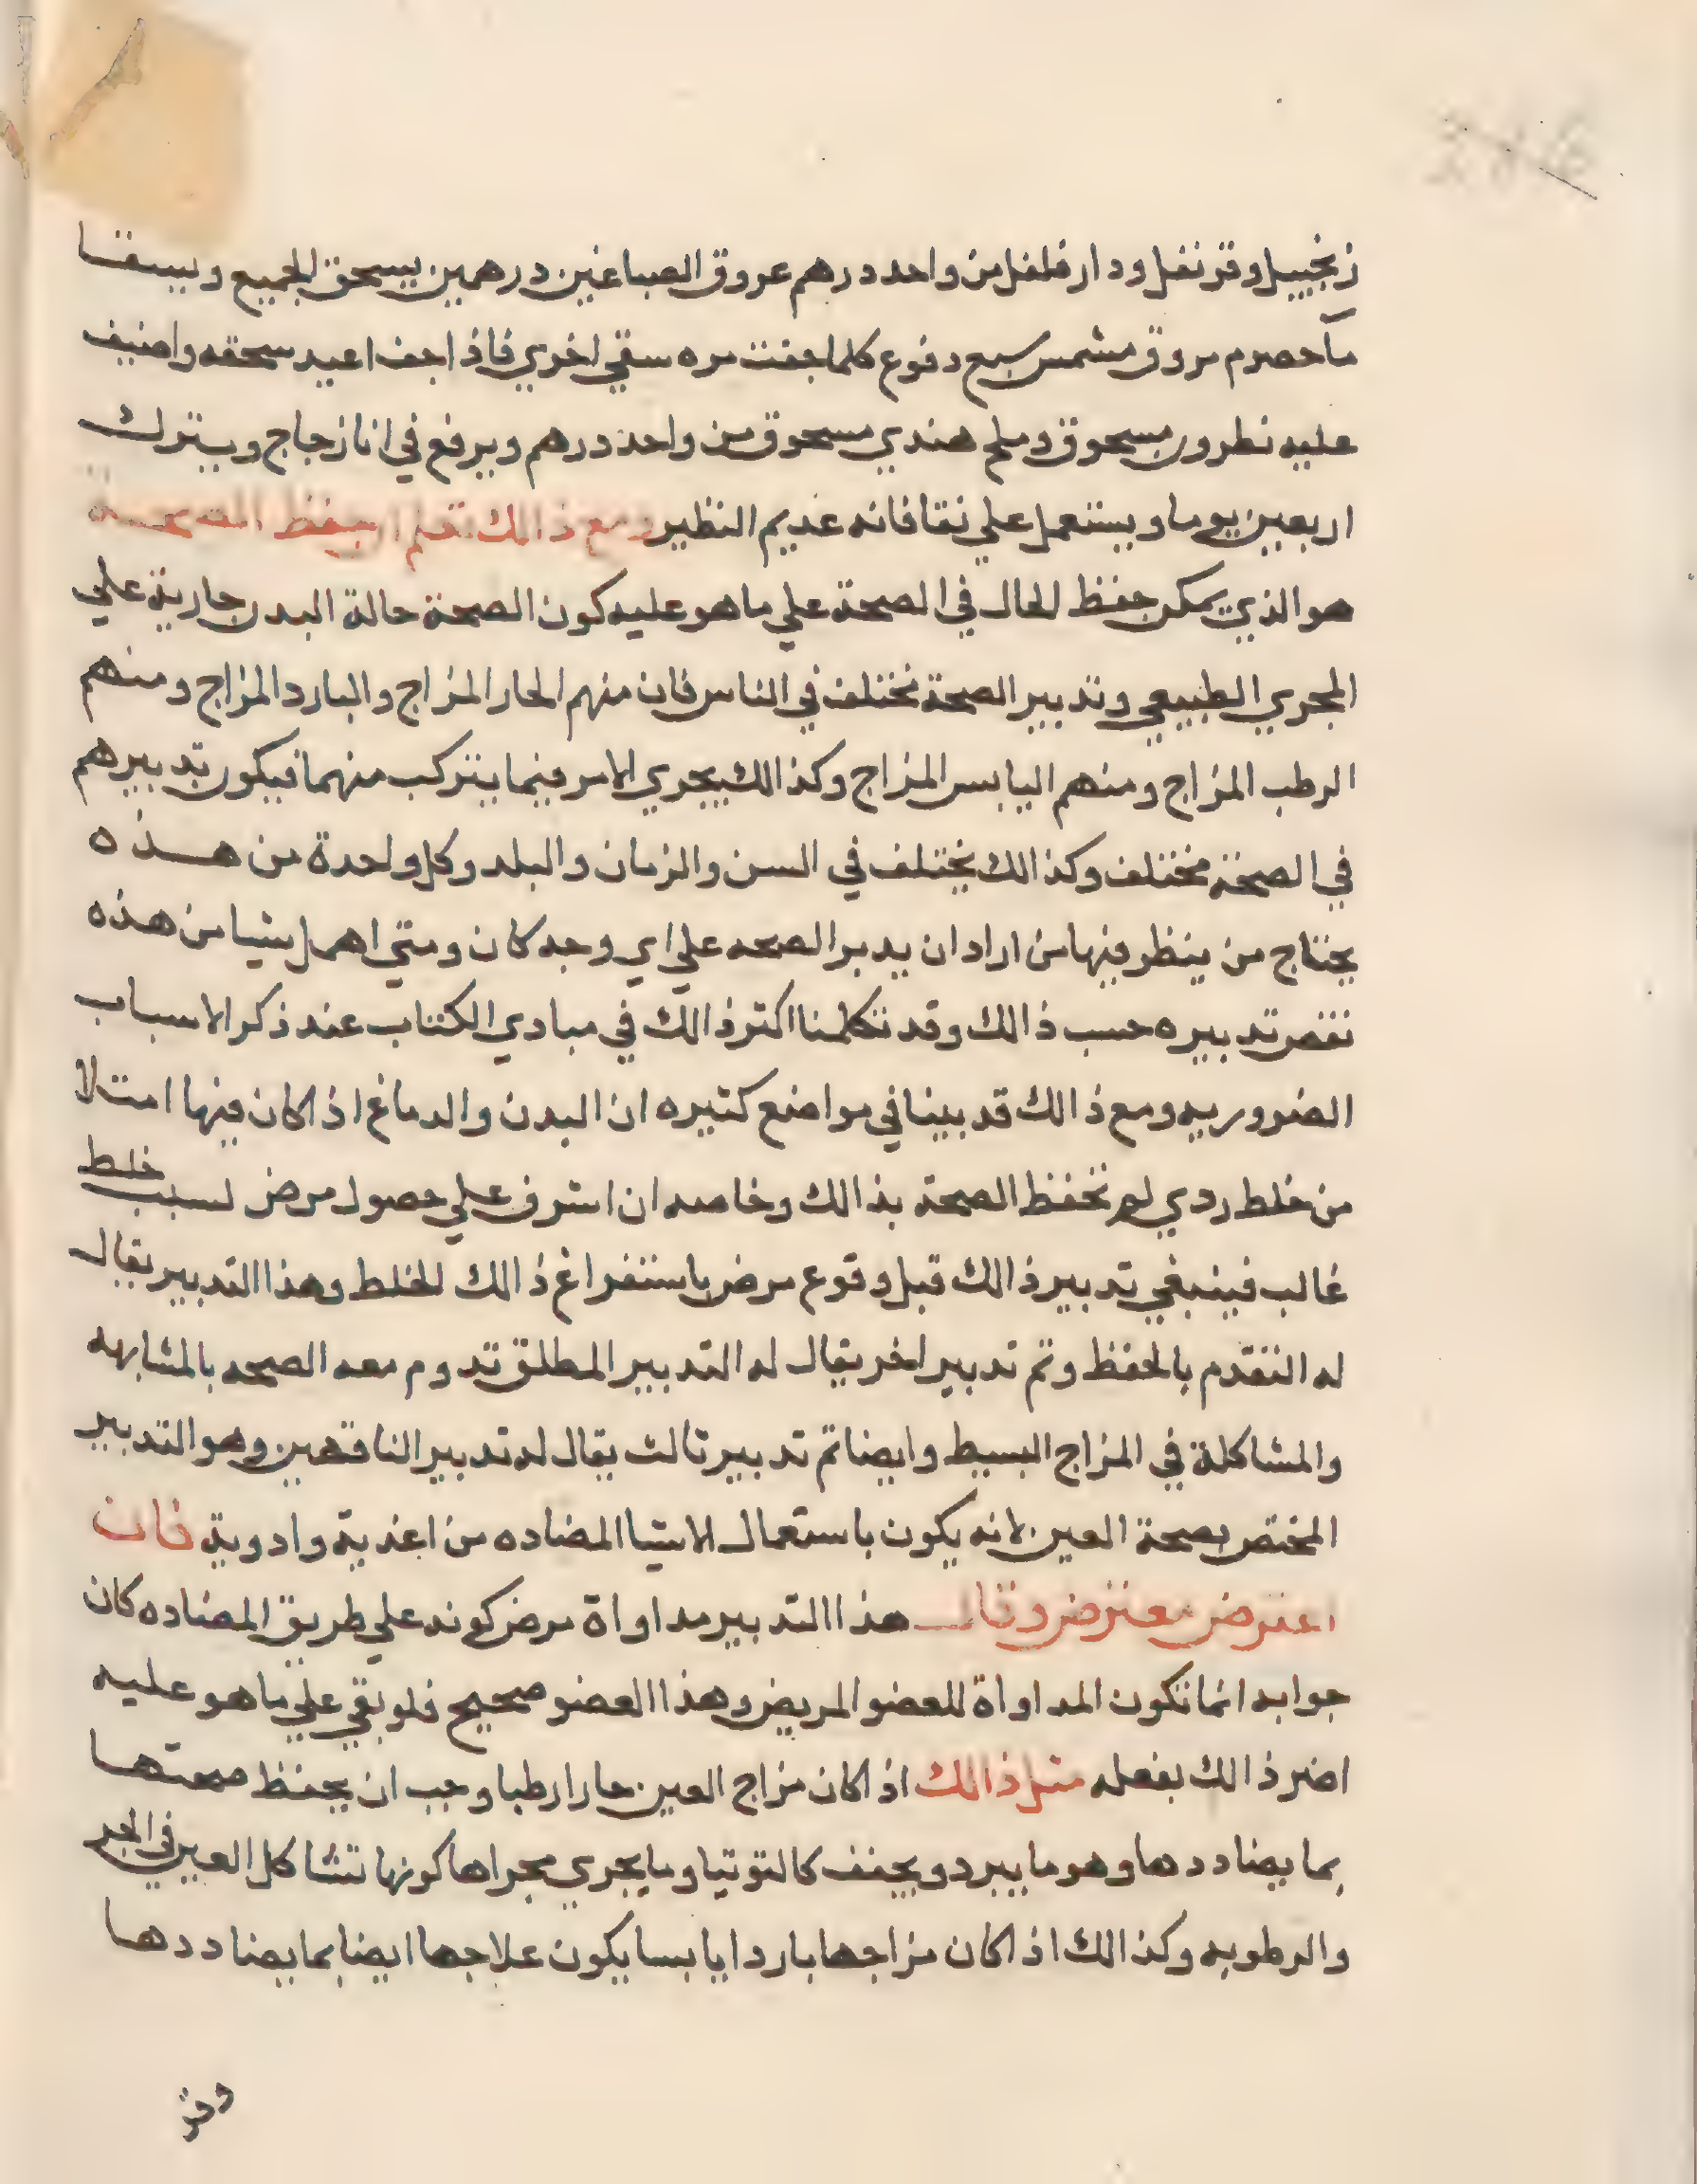 زنجبيل وقرنفل ودار فلفل من واحد درهم عروق الصباغين درهمين يسحق الجميع ويسقا
مآ حصرم مروق مشمس سبع دفوع كلما جفت مره سقي اخري فاذا جف اعيد سحقه واضيف
عليه نطرون مسحوق وملح هندي مسحوق من واحد درهم ويرفع في انا زجاج ويترك
اربعين يوما ويستعمل علي نقا فانه عديم النظير ومع ذالك نعلم ان حفظ الصحة
هو الذي يمكن حفظ الحال في الصحة علي ما هو عليه كون الصحة حالة البدن جارية علي
المجري الطبيعي وتدبير الصحة تختلف في الناس فان منهم الحار المزاج والبارد المزاج ومنهم
الرطب المزاج ومنهم اليابس المزاج وكذالك يجري الامر فيما يتركب منهما فيكون تدبيرهم
في الصحة مختلف وكذالك يختلف في السن والزمان والبلد وكل واحدة من هذه
يحتاج من ينظر فيها من اراد ان يدبر الصحه علي اي وجه كان ومتي اهمل شيا من هذه
نقص تدبيره حسب ذالك وقد تكلمنا اكثر ذالك في مبادي الكتاب عند ذكر الاسباب
الضروريه ومع ذالك قد بينا في مواضع كثيره ان البدن والدماغ اذا كان فيها امتلا
من خلط ردي لم تحفظ الصحة بذالك وخاصه ان اشرف علي حصول مرض لسبب خلط
غالب فينبغي تدبير ذالك قبل وقوع مرض باستفراغ ذالك الخلط وهذا التدبير يقال
له التقدم بالحفظ وثم تدبير اخر يقال له التدبير المطلق تدوم معه الصحه بالمشابهه
والمشاكلة في المزاج البسيط وايضا ثم تدبير ثالث يقال له تدبير الناقهين وهو التدبير
المختص بصحة العين لانه يكون باستعمال الاشيا المضاده من اغذية وادوية فان
اعترض معترض وقال هذا التدبير مداواة مرض كونه علي طريق المضاده كان
جوابه انما تكون المداواة للعضو المريض وهذا العضو صحيح فلو بقي علي ما هو عليه
اضر ذالك بفعله مثل ذالك اذا كان مزاج العين حارا رطبا وجب ان يحفظ صحتها
بما يضاددها وهو ما يبرد ويجفف كالتوتيا وما يجري مجراها كونها تشاكل العين في الحر
والرطوبه وكذالك اذا كان مزاجها باردا يابسا يكون علاجها ايضا بما يضاددها